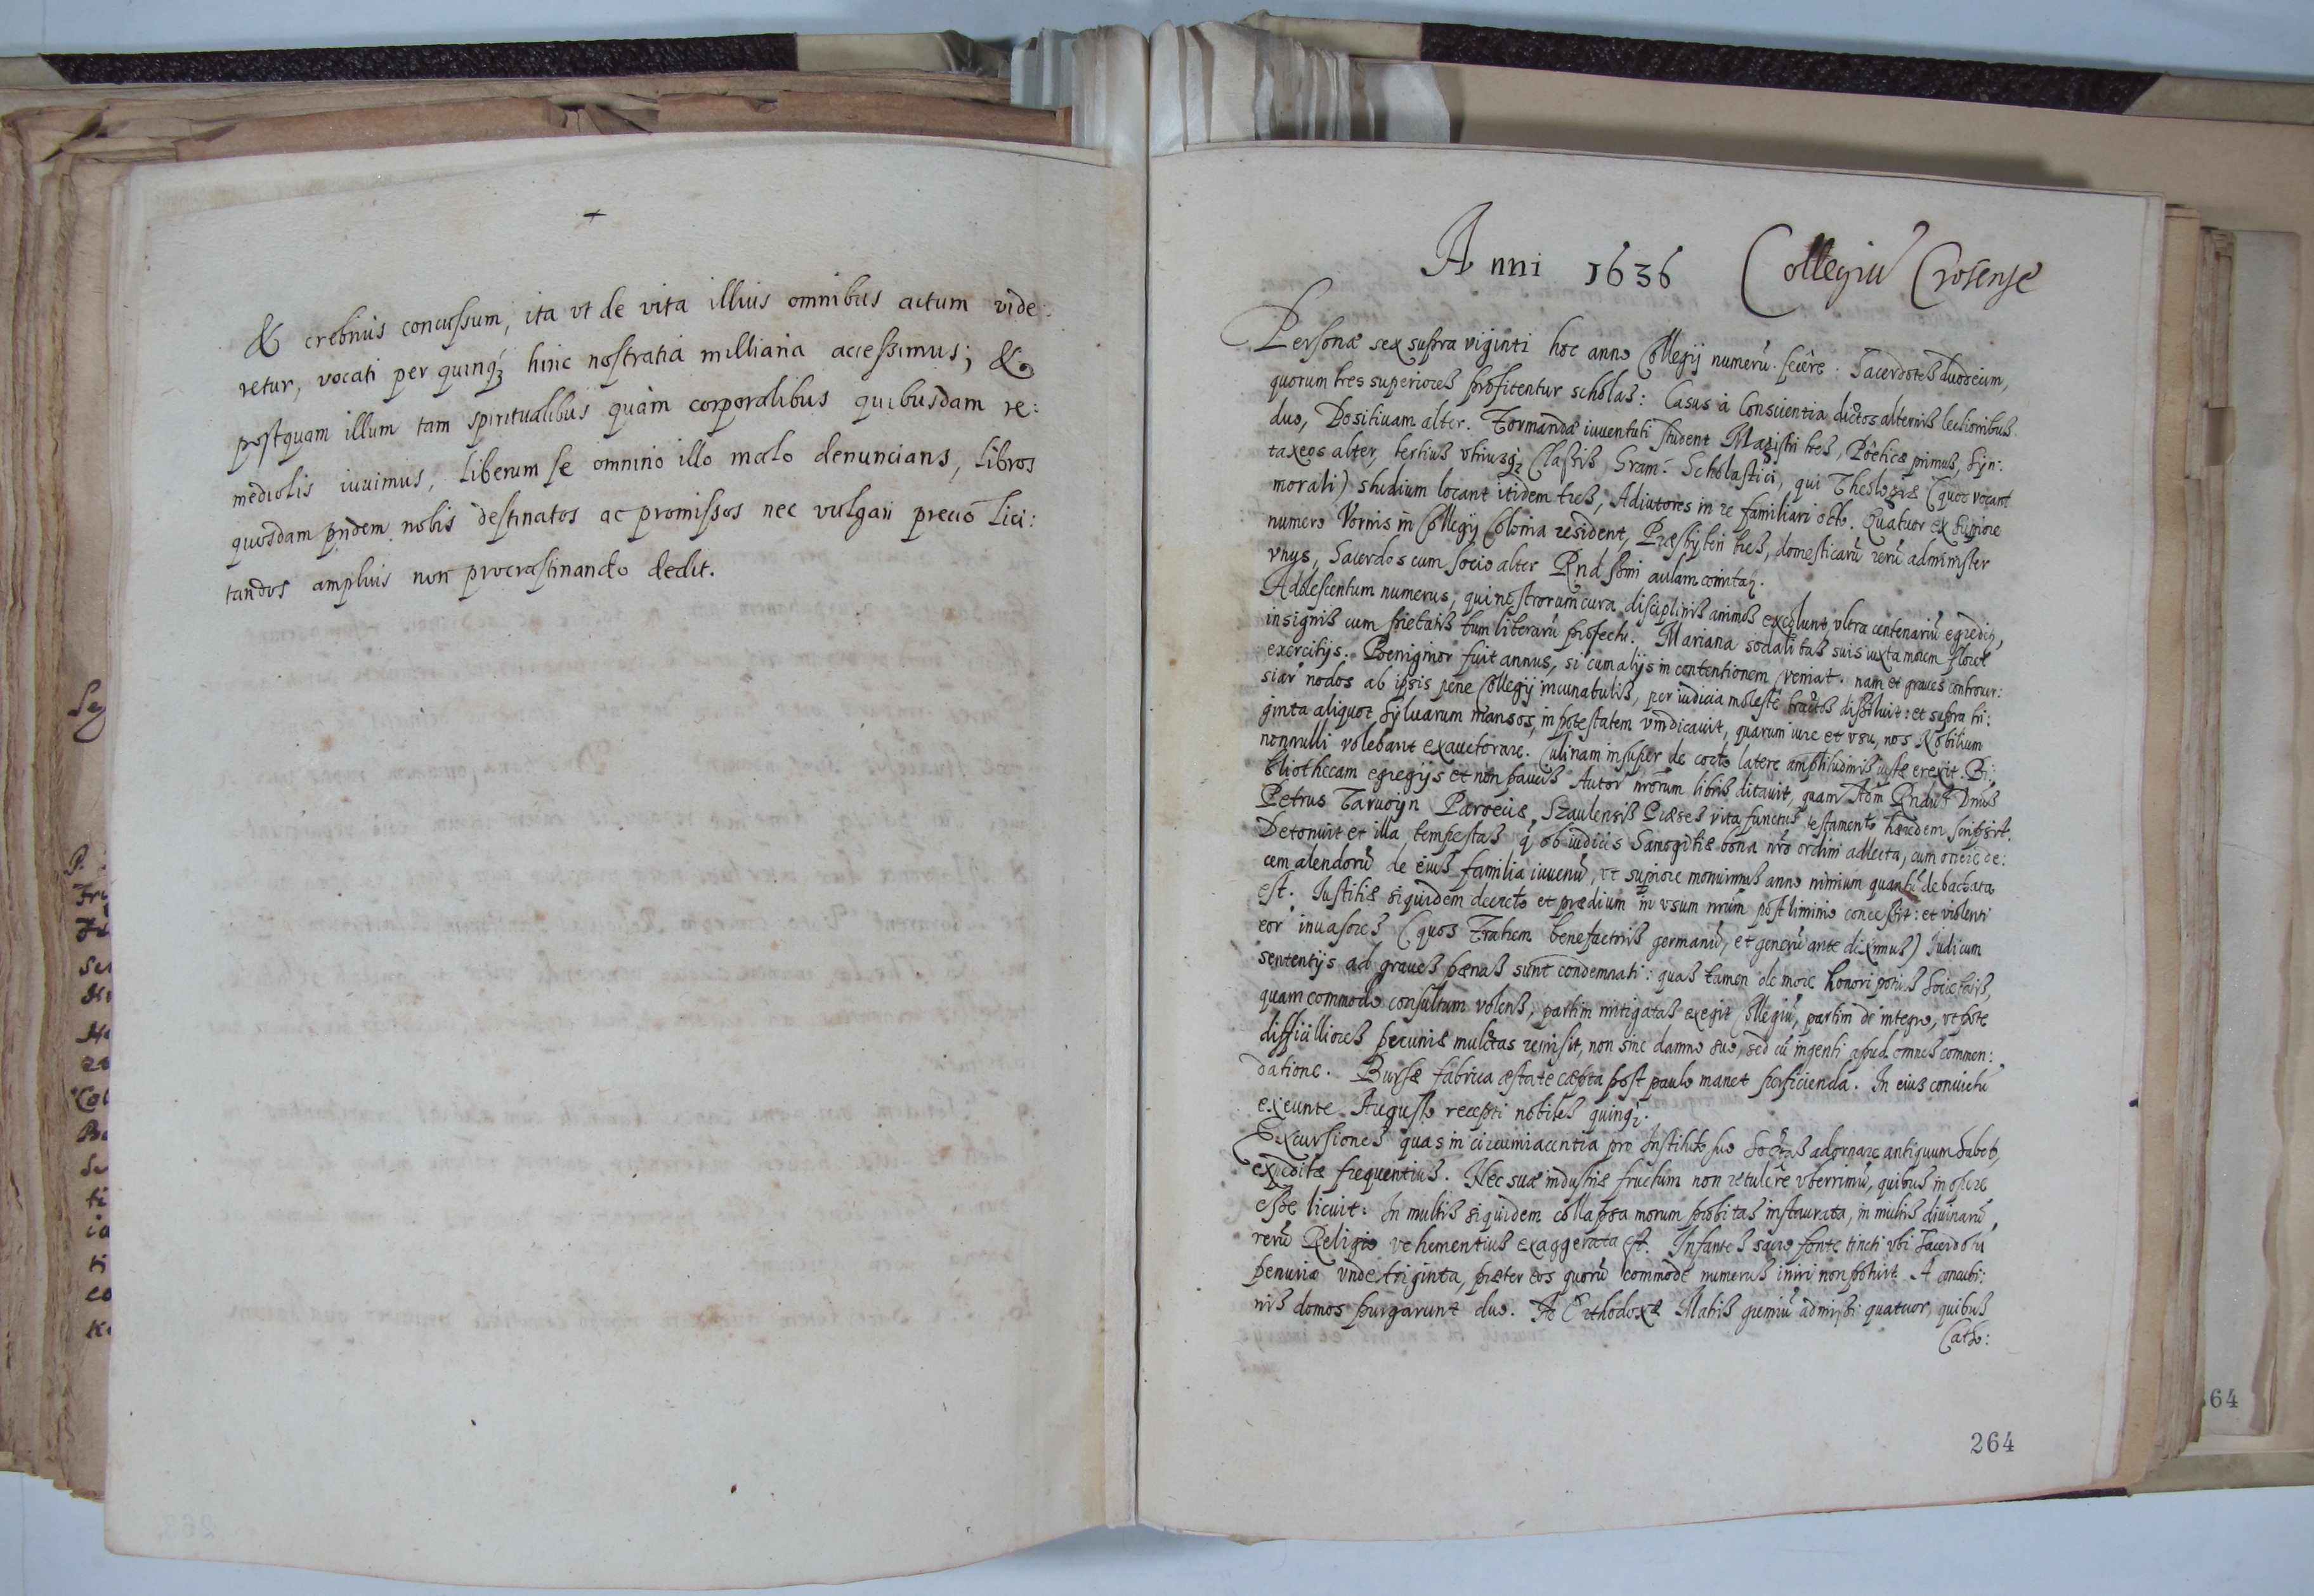 & crebrius concussum, ita vt de vita illius omnibus actum vide:
retur, vocati per quinqꝫ hinc nostratia milliaria accessimus; &
postquam illum tam spiritualibus quàm corporalibus quibusdam re:
medijs iuuimus, liberum se omnino illo malo denuncians, libros
quosdam pridem nobis destinatos ac promissos nec vulgari precio lici:
tandos amplius non procrastinando dedit.
Anni 1636 Collegiū Crosense
Personæ sex supra viginti hoc anno Collegij numerū fecêre: Sacerdotes duodecim,
quorum tres superiores profitentur scholas: Casus à Conscientia dictos alternis lectionibus
duo, Positiuam alter. Formandæ iuuentuti student Magistri tres, Pöetices primus, Syn:
taxeos alter, tertius vtriusqꝫ Classis Gram: Scholastici, qui Theologiæ (quoc vocant
morali) studium locant itidem tres, Adiutores in re familiari octo. Quatuor ex superiore
numero Vornis in Collegij Colonia resident, Præsbyteri tres, domesticarū rerū administer
vnus, Sacerdos cum socio alter Rnd ssimi aulam comitatꝫ.
Adolescentum numerus, qui nostrorum cura disciplinis animos excolunt, vltra centenariū egreditꝫ,
insignis cum pietatis tum literarū profectu. Mariana sodalitas suis iuxta morem floret
exercitijs. Benignior fuit annus, si cum alijs in contentionem veniat. nam et graues controuer:
siarū nodos ab ipsis pene Collegij incunabulis, per iudicia moleste tractos dissoluit: et supra tri:
ginta aliquot syluarum mansos, in potestatem vindicauit, quarum iure et vsu, nos Nobilium
nonnulli volebant exauctorare. Culinam insuper de cocto latere amplitudinis iustæ erexit. Bi:
bliothecam egregijs et non paucis Autor nrōrum libris ditauit, quam Adm Rndus Dnus
Petrus Tarvoijn Paroeciæ Szaulensis Præses vita functus testamento hæredem scripsit.
Detonuit et illa tempestas q̨ ob iudicijs Samogitiæ bona nrō ordini adlecta, cum onere de:
cem alendorū de eius familia iuuenū, vt superiore monuimus anno nimium quantū debacchata
est. Iustitiæ siquidem decreto et prædium in vsum nrūm postliminio concessit: et violenti
eor inuasores (quos Fratrem benefactris germanū, et generū ante diximus) Iudicum
sententijs ad graues pœnas sunt condemnati: quas tamen de more honori potius Societatis,
quam commodo consultum volens, partim mitigatas exegit Collegiū, partim de integro, vtpote
difficilliores pecuniæ mulctas remisit, non sine damno suo, sed cū ingenti apud omnes commen:
datione. Bursæ fabrica æstate cæpta post paulo manet perficienda. In eius conuictū
exeunte Augusto recepti nobiles quinqꝫ.
Excursiones quas in circumiacentia pro Instituto suo Soctas adornare antiquum habet,
expeditæ frequentius. Nec suæ industriæ fructum non retulêre vberrimū, quibus in opere
esse licuit: In multis siquidem collapsa morum probitas instaurata, in multis diuinarū
rerū Religio vehementius exaggerata est. Infantes sacro fonte tincti vbi Sacerdotū
penuria vndetriginta, præter eos quorū commodè numerus iniri non potuit. A concubi:
nis domos purgarunt duo. Ad Orthodoxæ Matris gremiū admissi quatuor, quibus
Catho:
264